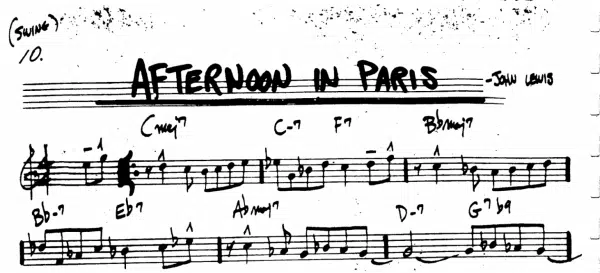 (SWING)
10.
AFTERNOON IN PARIS
-JOHN LEWIS
Cmaj7 C-7 F7 Bbmaj7
Bb-7 Eb7 Abmaj7 D-7 G7b9